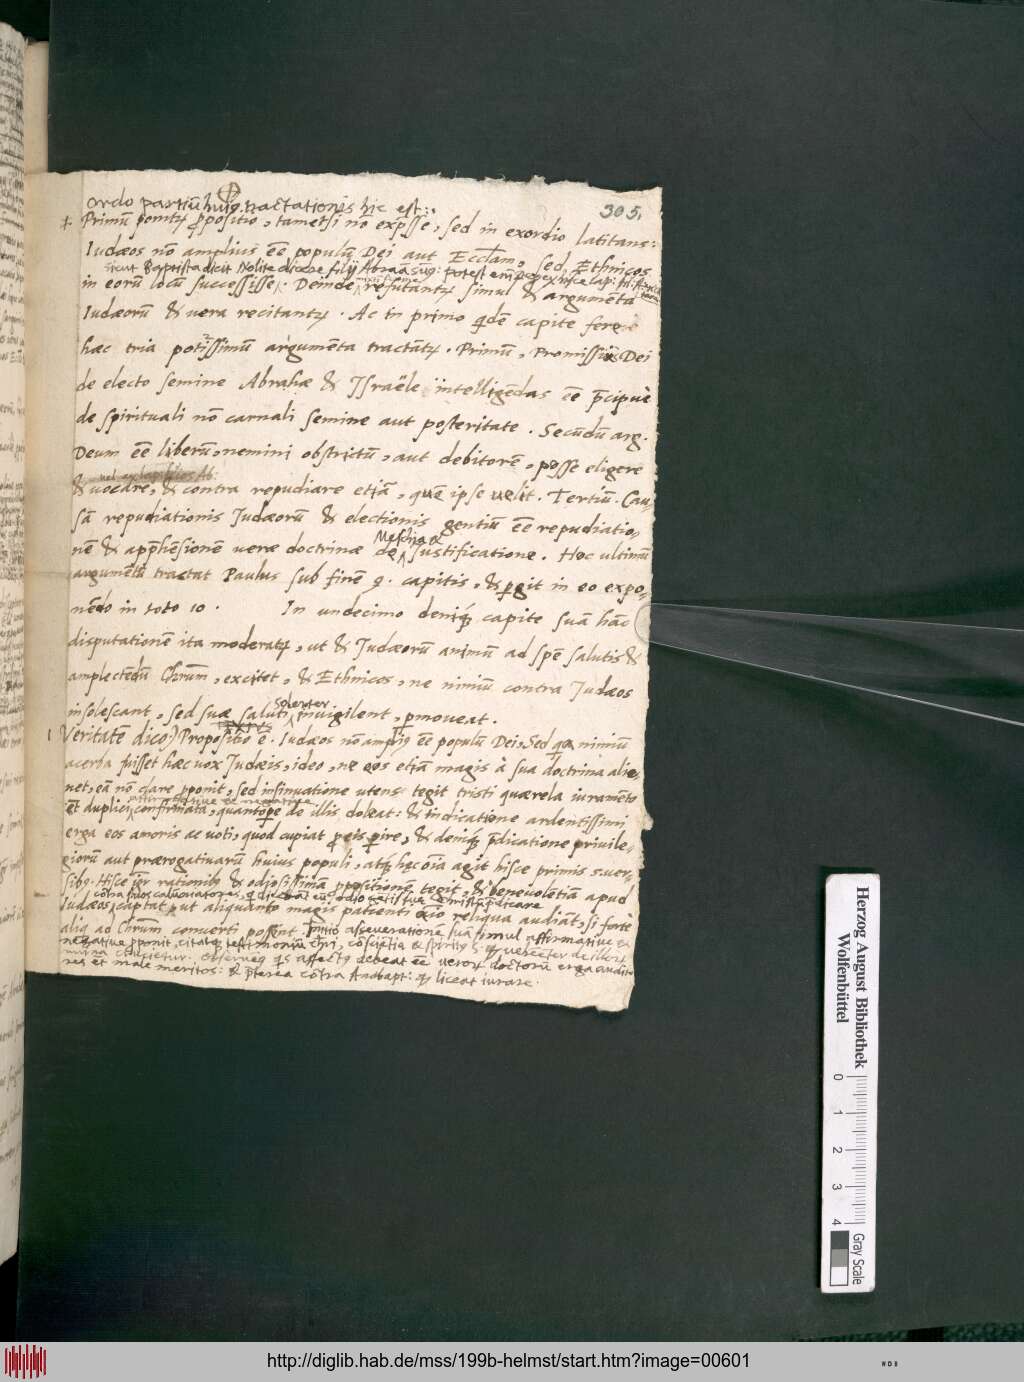 305.
ordo partiū huiꝰ tractationis hic est:
+ Primū ponitꝛ ꝓpositio, tametsi nō exp̄sse, sed in exordio latitans:
Iudæos nō amplius ēē populū Dei aut Eccl̄am, sed Ethnicos
sicut Baptista dicit Nolite dicere filij Abraā sumꝰ: potest em̄
in eorū locū successisse. Deinde refutantꝛ simul & argumēta
Iudæorū & uera recitantꝛ. Ac in primo qͥdē capite fere
hæc tria potissimū argumēta tractātꝛ. Primū, Promissiões Dei
de electo semine Abrahæ & Jsraële intelligēdas ēē p̄cipuè
de spirituali nō carnali semine aut posteritate. Secūdū arg.
Deum ēē liberū, nemini obstrictū, aut debitorē, posse eligere
& uocare, & contra repudiare etiā, quē ipse uelit. Tertiū. Cau,
sā repudiationis Judæorū & electionis gentiū ēē repudiatio,
nē & app̄hēsionē ueræ doctrinæ de Justificatione. Hoc ultimū
Messia &
argumētū tractat Paulus sub finē 9. capitis, & ꝑgit in eo expo,
nēdo in toto 10. In undecimo deniqꝫ capite suā hāc
disputationē ita moderatꝛ, ut & Judæorū animū ad spē salutis &
amplectēdū Chr̄um, excitet, & Ethnicos, ne nimiū contra Judæos
insolescant, sed suæ saluti inuigilent, ꝑmoueat.
solerter
1 Veritatē dico) Propositio ē. Iudæos nō ampliꝰ ēē populū Dei, Sed qa nimiū
acerba fuisset hæc uox Judæis, ideo, ne eos etiā magis à sua doctrina alie,
net, eā nō clare ꝓponit, sed insinuatione utens tegit tristi quærela iuramēto
affirmatiue et negatiue
et duplici confirmata, quantopere de illis doleat: & indicatione ardentissimi
erga eos amoris ac uoti, quod cupiat ꝓ eis ꝑire, & deniqꝫ p̄dicatione priuile,
giorū aut prærogatiuarū huius populi, atqꝫ hęc oīa agit hisce primis 5 uer,
sibꝰ. Hisce igr̄ rationibꝰ & odiosissimā propositionē tegit, & beneuolētiā apud
Iudæos captat, ut aliquanto magis patienti aīo reliqua audiāt, si fortè
aliqͥ ad Chr̄um conuerti possent. Initio asseuerationē suā simul affirmatiue &
negatiue ꝓponit, citatqꝫ testimoniū Chr̄i, cōsciētiæ & spiritꝰ S.
Obserue qͥs affectꝰ debeat ēē uerorꝫ doctorū erga audito
res et male meritos: & p̄terea cōtra Anabapt: qꝫ liceat iurare.
Herzog August Bibliothek
Wolfenbüttel
0 1 2 3 4
Gray Scale
http://diglib.hab.de/mss/199b-helmst/start.htm?image=00601
WDB